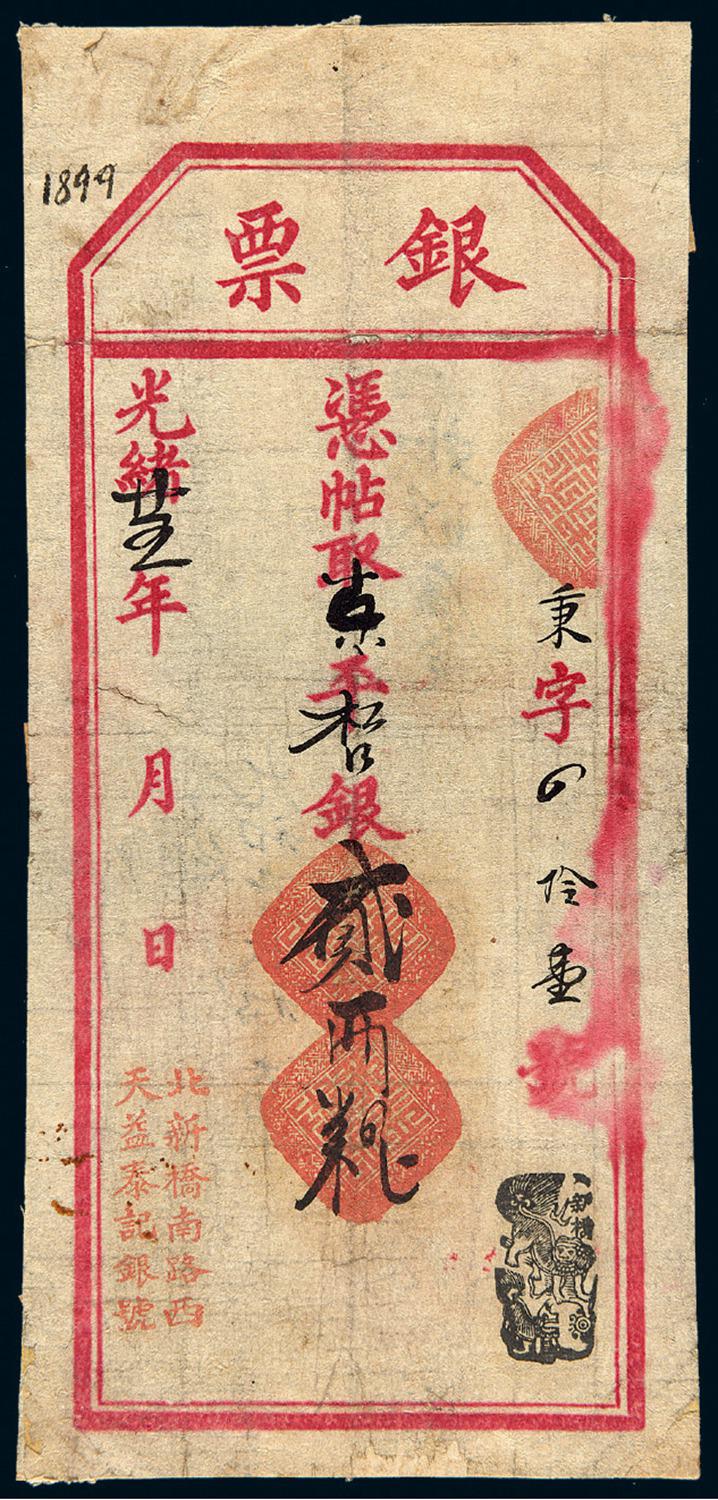 銀票
秉字 拾壹號
憑帖取京平松銀貳兩整
光緒廿五年 月 日
北新橋南路西
天益泰記銀號
1899